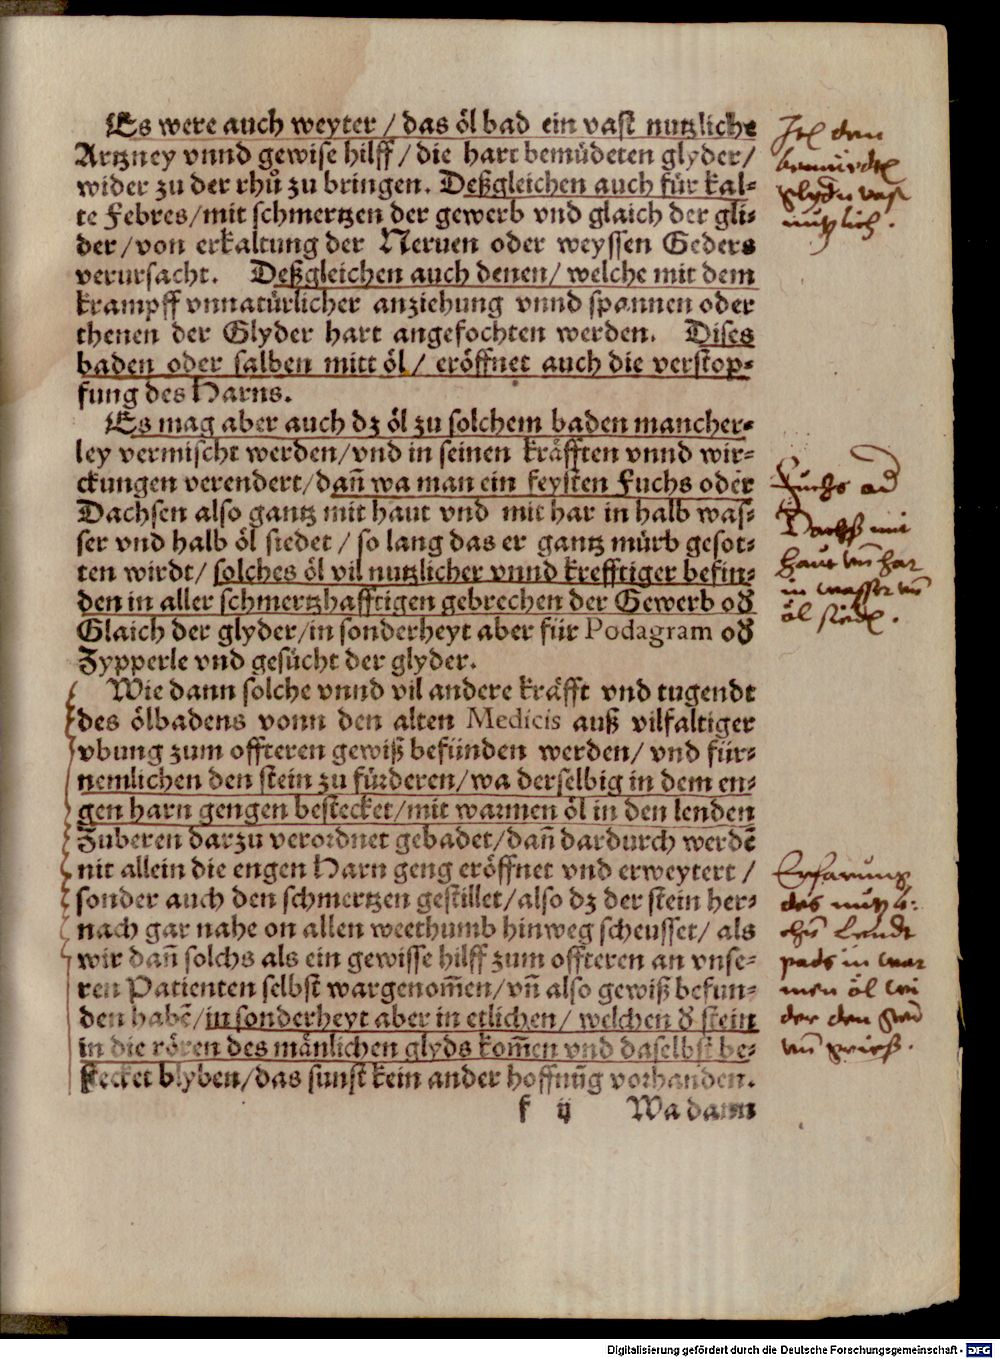 Es were auch weyter / das öl bad ein vast nutzliche
Artzney vnnd gewise hilff / die hart bemüdeten glyder /
wider zu der rhů zu bringen. Deßgleichen auch für kal-
te Febres / mit schmertzen der gewerb vnd glaich der gli-
der / von erkaltung der Neruen oder weyssen Geders
verursacht. Deßgleichen auch denen / welche mit dem
krampff vnnatürlicher anziehung vnnd spannen oder
thenen der Glyder hart angefochten werden. Dises
baden oder salben mitt öl / eröffnet auch die verstop-
fung des Harns.
Es mag aber auch dz öl zu solchem baden mancher-
ley vermischt werden / vnd in seinen kräfften vnnd wir-
ckungen verendert / dañ wa man ein feysten Fuchs oder
Dachsen also gantz mit haut vnd mit har in halb was-
ser vnd halb öl siedet / so lang das er gantz mürb gesot-
ten wirdt / solches öl vil nutzlicher vnnd krefftiger befin-
den in aller schmertzhafftigen gebrechen der Gewerb oď
Glaich der glyder / in sonderheyt aber für Podagram oď
Zypperle vnd gesücht der glyder.
Wie dann solche vnnd vil andere kräfft vnd tugendt
des ölbadens vonn den alten Medicis auß vilfaltiger
vbung zum offteren gewiß befünden werden / vnd für-
nemlichen den stein zu fürderen / wa derselbig in dem en-
gen harn gengen bestecket / mit warmen öl in den lenden
Zuberen darzu verordnet gebadet / dañ dardurch werdē
nit allein die engen Harn geng eröffnet vnd erweytert /
sonder auch den schmertzen gestillet / also dz der stein her-
nach gar nahe on allen weethumb hinweg scheusset / als
wir dañ solchs als ein gewisse hilff zum offteren an vnse-
ren Patienten selbst wargenom̄en / vñ also gewiß befun-
den habē / in sonderheyt aber in etlichen / welchen ď stein
in die rören des mänlichen glyds kom̄en vnd daselbst be-
stecket blyben / das sunst kein ander hoffnūg vorhanden.
k ij Wa dann
den
glydern vast
nutzlich.
Fuchs od
Dachß mit
haut vñ har
in wasser vñ
öl sieden.
Erfarung
des nutzli-
chē Lendt
pads in war
men öl wi
der den stein
vñ grieß.
Digitalisierung gefördert durch die Deutsche Forschungsgemeinschaft - DFG